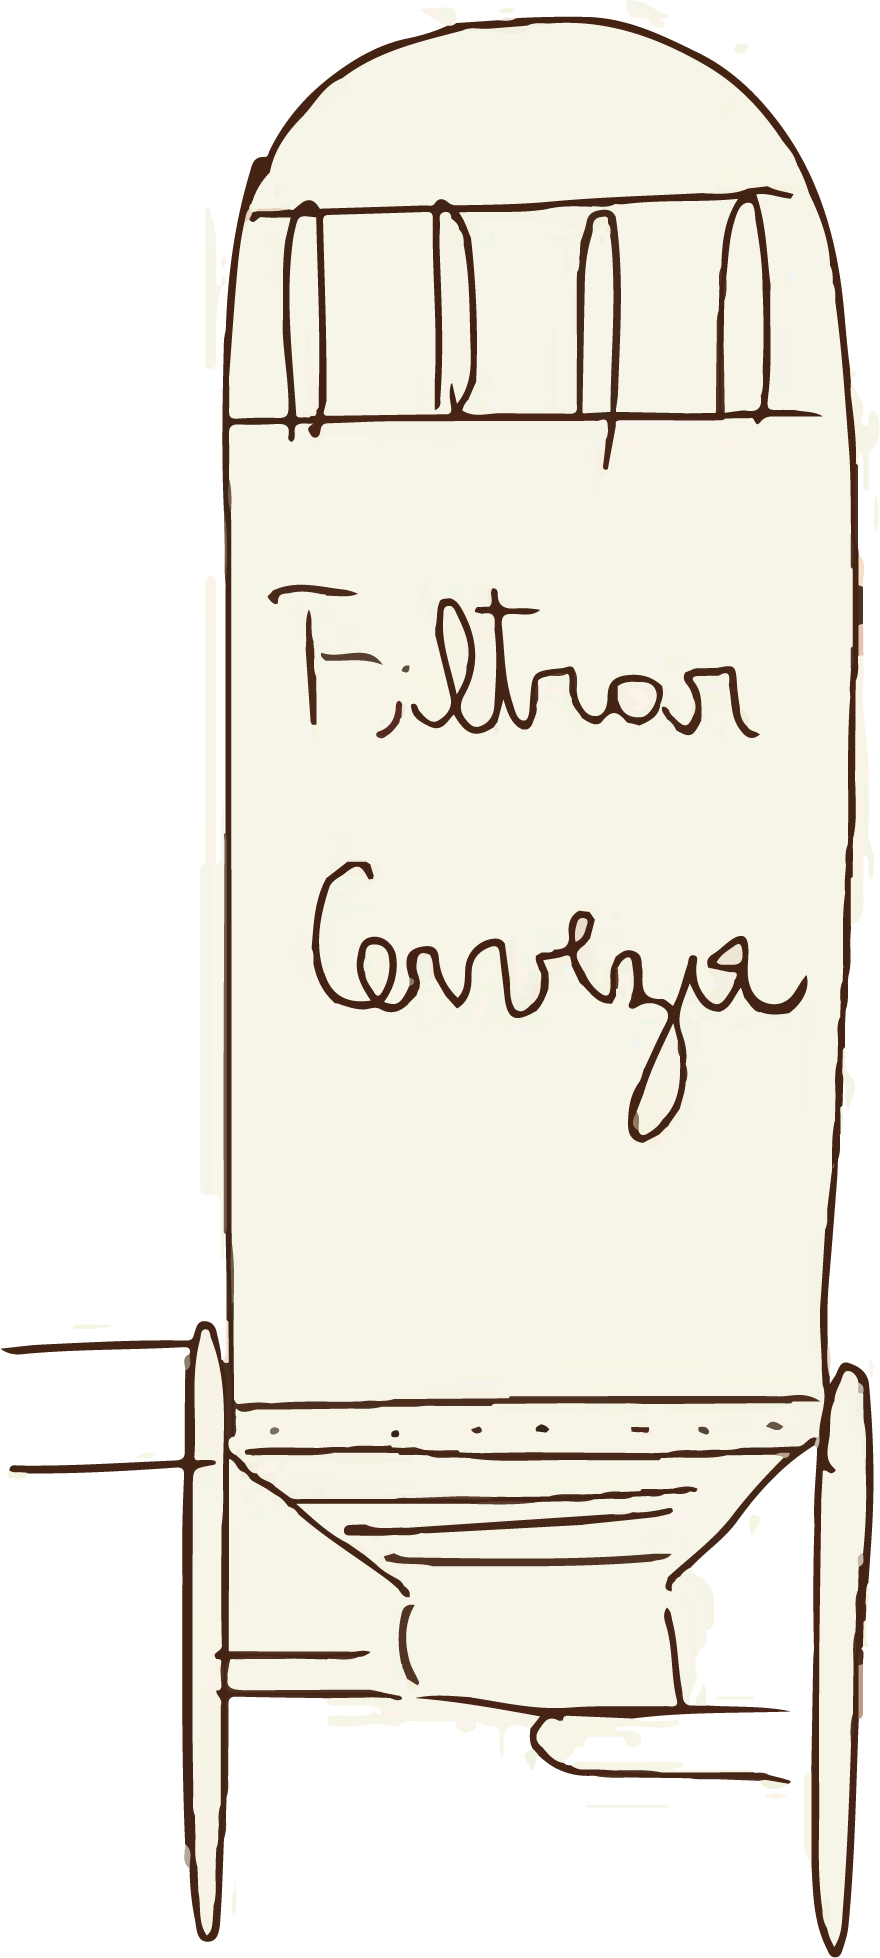 Filtrar
Cerveza